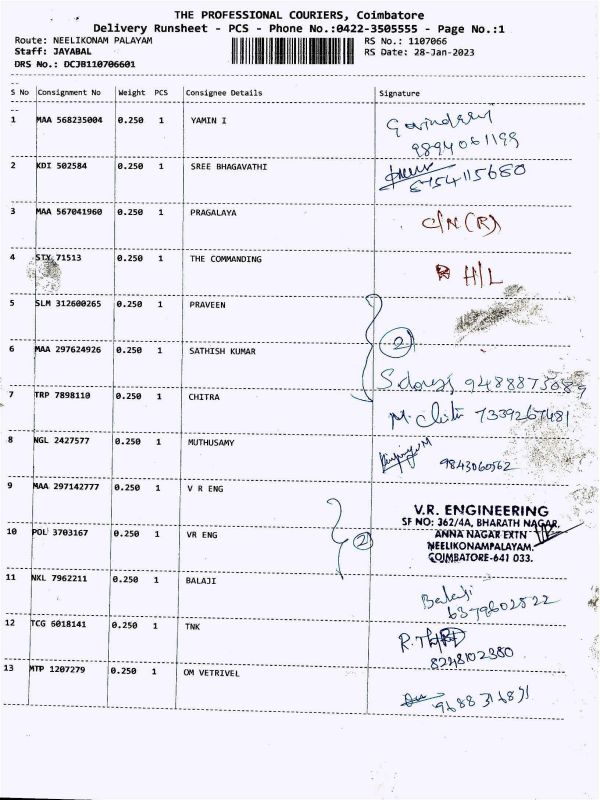 THE PROFESSIONAL COURIERS, Coimbatore
Delivery Runsheet - PCS - Phone No.:0422-3505555 - Page No.:1
Route: NEELIKONAM PALAYAM RS No.: 1107066
Staff: JAYABAL RS Date: 28-Jan-2023
DRS No.: DCJB110706601
S No Consignment No Weight PCS Consignee Details Signature
1 MAA 568235004 0.250 1 YAMIN I
9894061199
2 KDI 502584 0.250 1 SREE BHAGAVATHI
3 MAA 567041960 0.250 1 PRAGALAYA C/N (R)
4 STX 71513 0.250 1 THE COMMANDING H/L
5 SLM 312600265 0.250 1 PRAVEEN
6 MAA 297624926 0.250 1 SATHISH KUMAR 2
9488873089
7 TRP 7898110 0.250 1 CHITRA M. Chitra 7339267481
8 NGL 2427577 0.250 1 MUTHUSAMY 9843060562
9 MAA 297142777 0.250 1 V R ENG
V.R. ENGINEERING
SF NO: 362/4A, BHARATH NAGAR,
ANNA NAGAR EXTN
NEELIKONAMPALAYAM.
COIMBATORE-641 033.
10 POL 3703167 0.250 1 VR ENG 2
11 NKL 7962211 0.250 1 BALAJI Balaji
6379602522
12 TCG 6018141 0.250 1 TNK
8248102380
13 MTP 1207279 0.250 1 OM VETRIVEL
9688316871